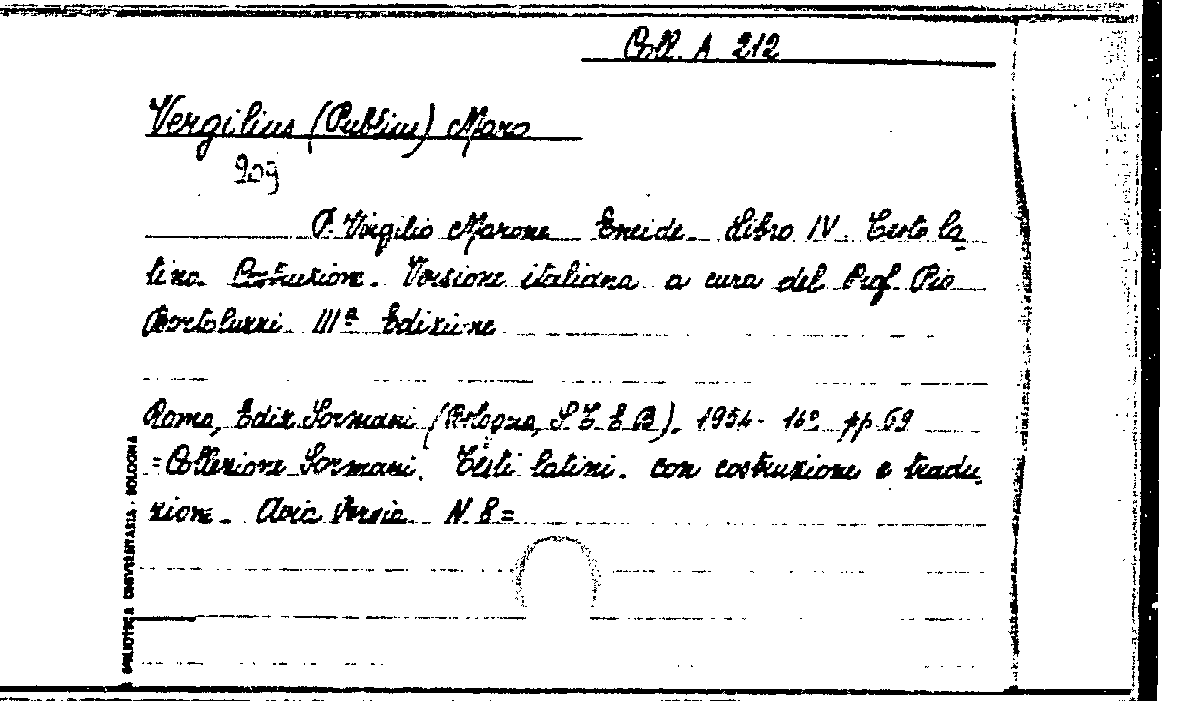 Coll. A 212
Vergilius (Publius) Maro
209
P. Virgilio Marone Eneide. Libro IV. Testo la
tino. Costruzione. Versione italiana a cura del Prof. Pio
Bortoluzzi IIIª Edizione
Roma, Ediz. Sormani (Bologna, S T E B). 1954. 16º pp 69
=Collezione Sormani. Testi latini. con costruzione e tradu
zione. N. 8=
BIBLIOTECA UNIVERSITARIA - BOLOGNA